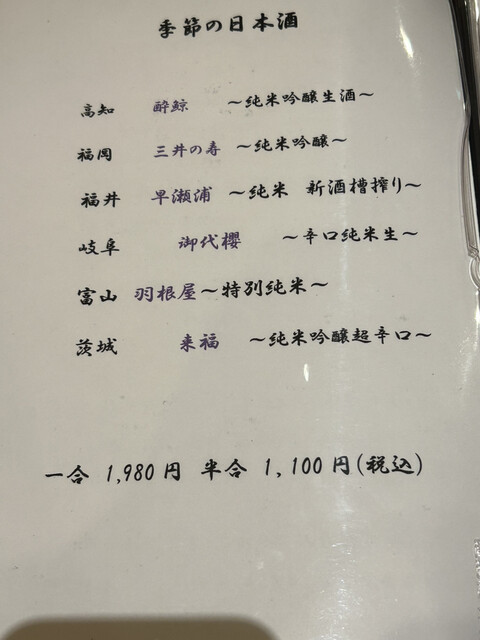 季節の日本酒
高知 酔鯨 ～純米吟醸生酒～
福岡 三井の寿 ～純米吟醸～
福井 早瀬浦 ～純米 新酒槽搾り～
岐阜 御代櫻 ～辛口純米生～
富山 羽根屋～特別純米～
茨城 来福 ～純米吟醸超辛口～
一合 1,980円 半合 1,100円(税込)